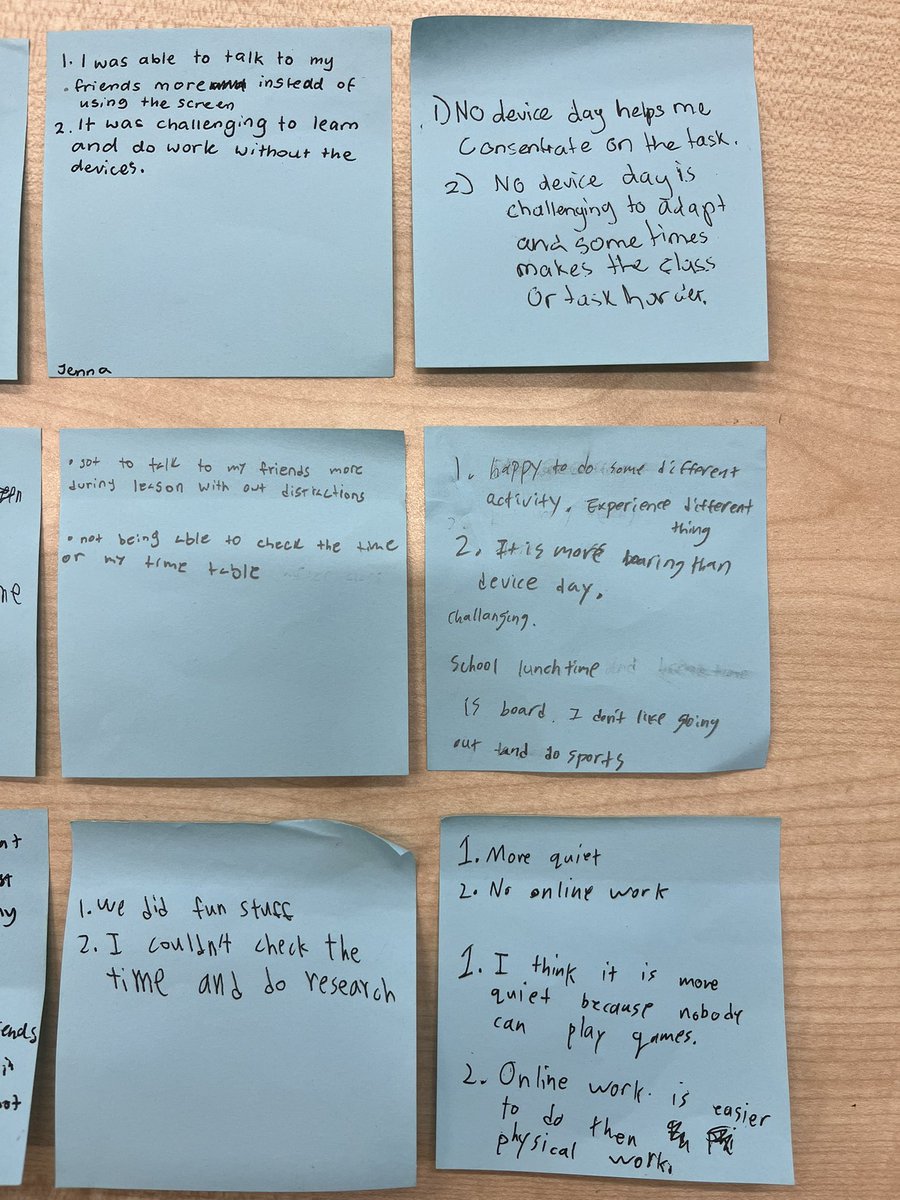 1. I was able to talk to my
friends more instedd of
using the screen
2. It was challenging to learn
and do work without the
devices.
Jenna
1) No device day helps me
Consentrate on the task.
2) No device day is
challenging to adapt
and some times
makes the class
Or task harder.
• got to talk to my friends more
during lesson with out distractions
• not being able to check the time
or my time table
1. happy to do some different
activity. Experience different
thing
2. It is more boaring than
device day.
Challanging.
School lunch time
is board. I don't like going
out and do sports
1. we did fun stuff
2. I couldn't check the
time and do research
1. More quiet
2. No online work
1. I think it is more
quiet because nobody
can play games.
2. Online work is easier
to do then
physical work.